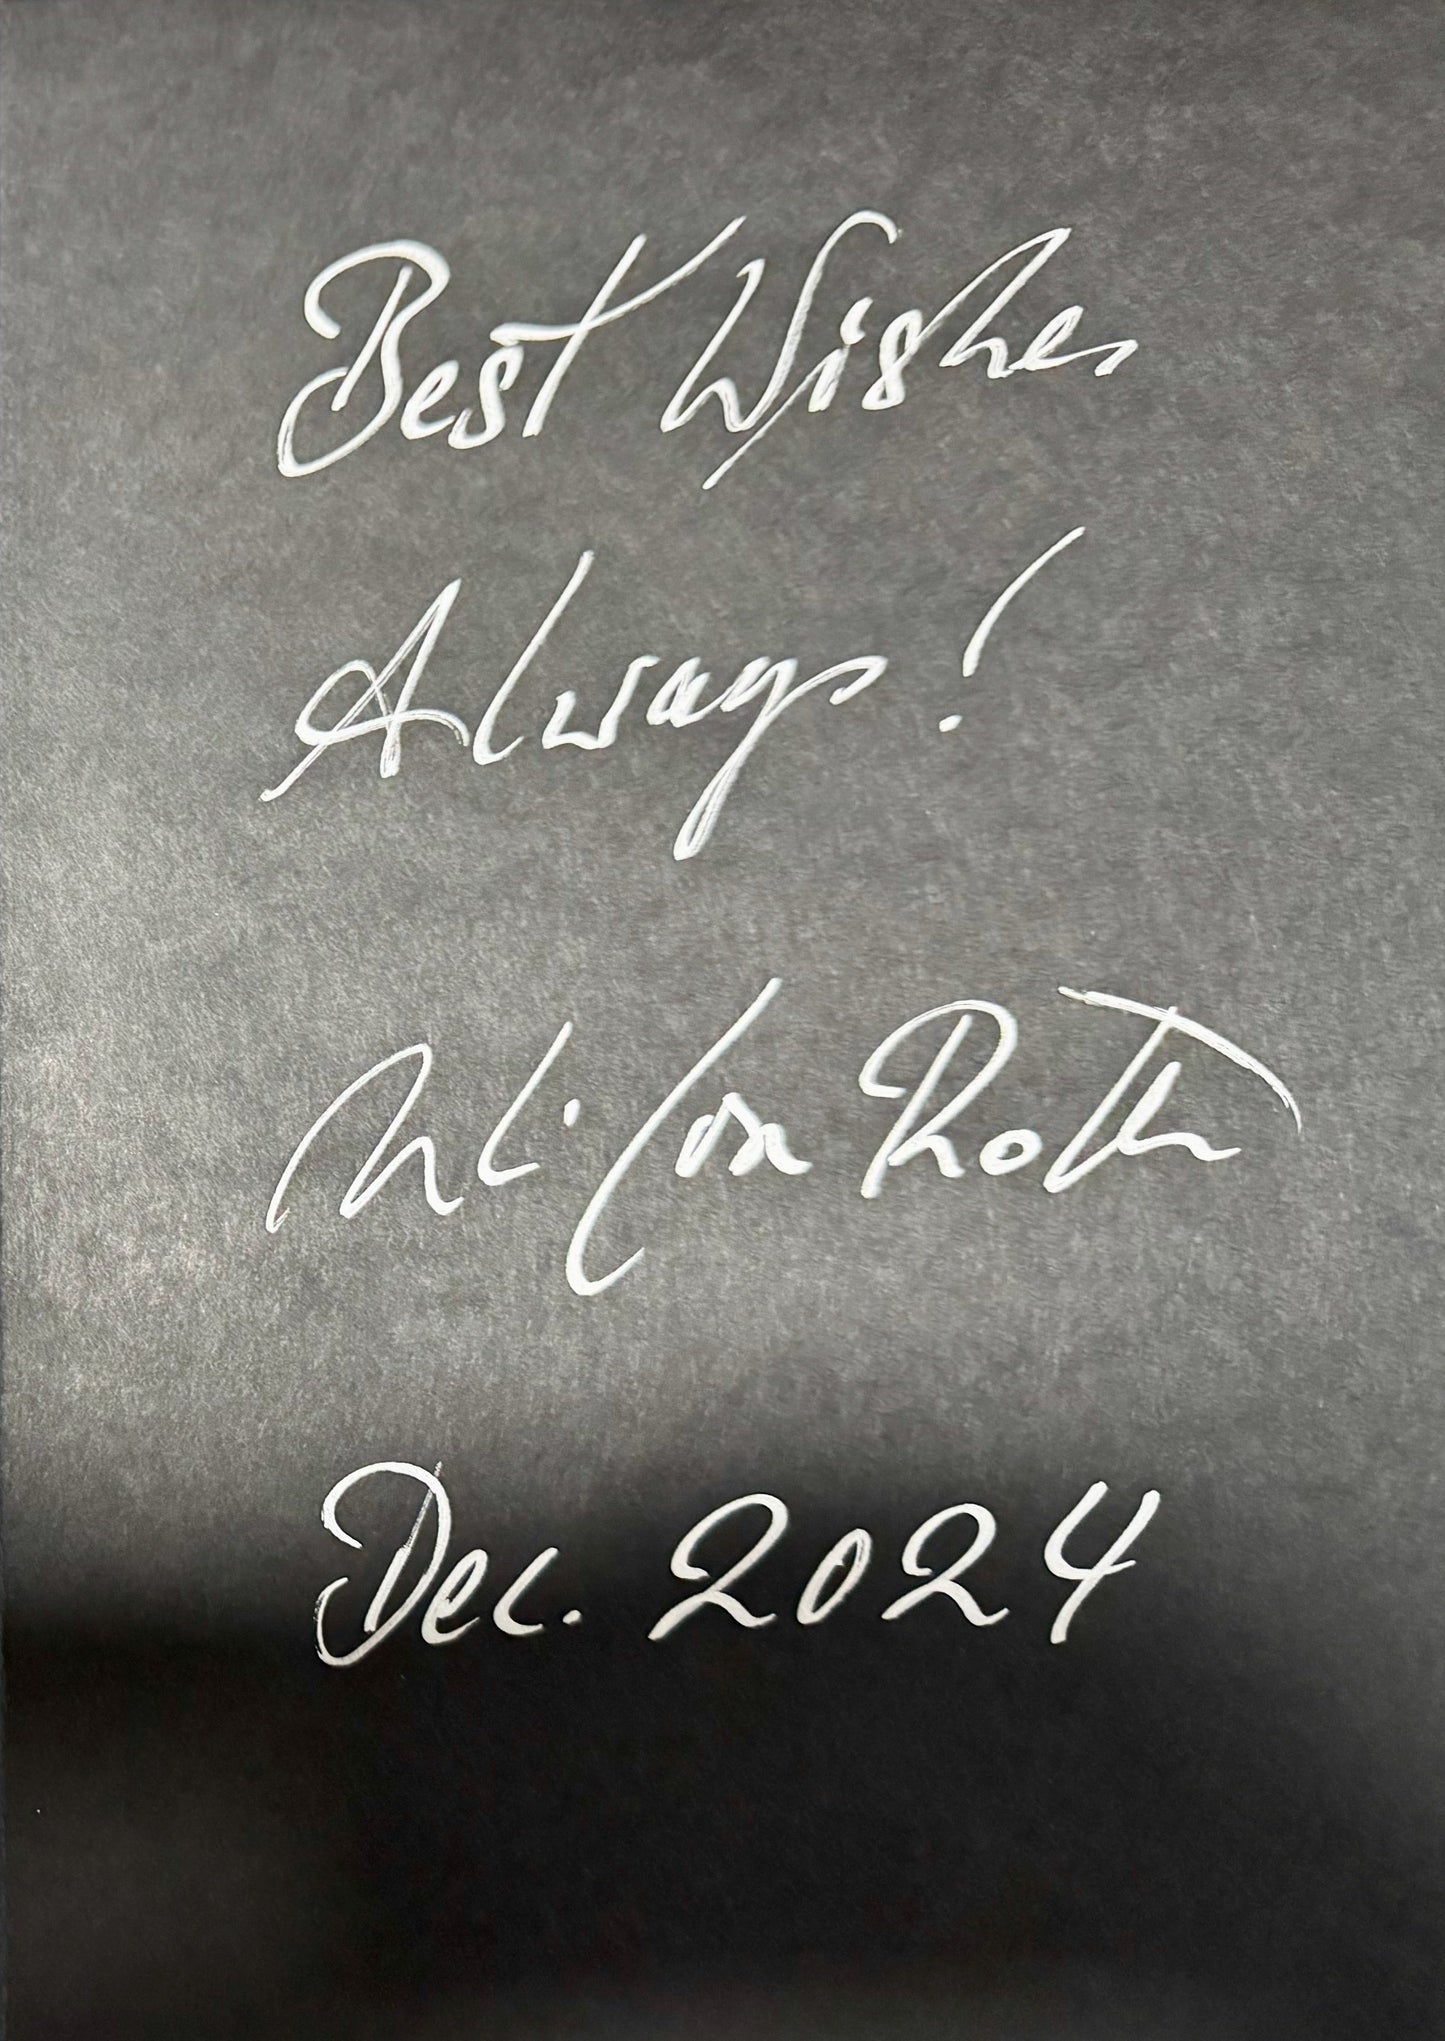 Best Wishes
Always!
Uli Jon Roth
Dec. 2024